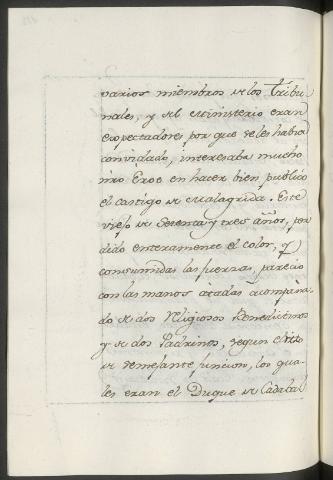 varios miembros de los Tribu-
nales, y del ministerio eran
expectadores por que se les habia
convidado, interesaba mucho
nro Eroe en hacer bien publico
el castigo de Malagrida. Este
viejo de setenta y tres años, per
dido enteramente el color, y
consumidas las fuerzas, parecio
con las manos atadas acompaña-
do de dos religiosos Benedictinos
y de dos Padrinos, segun el
de semejante funcion, los qua-
les eran el Duque de Cadabal